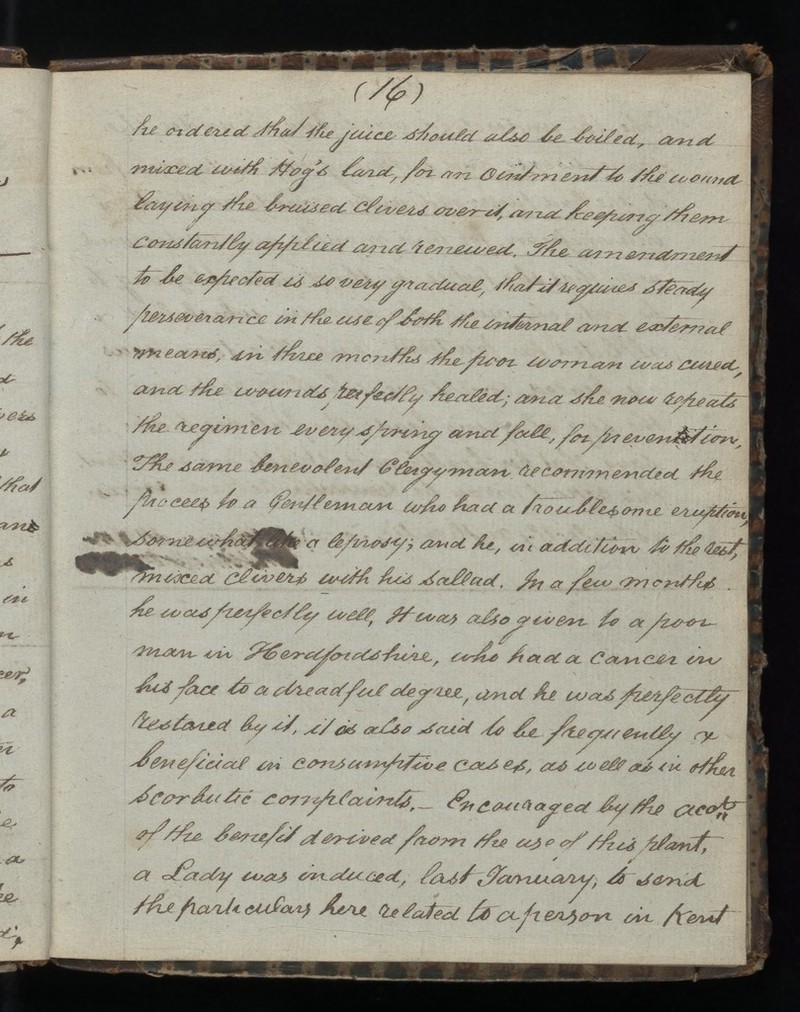 (16)
he ordered that the juice should also be boiled, and
mixed with Hog's lard, for an Ointment to the wound
laying the bruised clivers over it, and keeping them
constantly applied and renewed. The amendment
to be expected is so very gradual, that it requires steady
perseverance in the use of both the internal and external
means, in three months the poor woman was cured,
and the wounds perfectly healed; and she now repeats
the regimen every spring and fall, for prevention,
The same benevolent Clergyman recommended the
process to a Gentleman who had a troublesome eruption,
somewhat like a leprosy; and he, in addition to the rest,
mixed clivers with his sallad. In a few months
he was perfectly well, It was also given to a poor
man in Herdfordshire, who had a cancer in
his face to a dreadful degree, and he was perfectly
restored by it, it is also said to be frequently &
beneficial in consumptive cases, as well as in other
scorbutic complaints. – Encouraged by the acots
of the benefit derived from the use of this plant,
a Lady was induced, last January, to send
the particulars here related to a person in Kent
the
ers
that
in
cer,
a
to
a